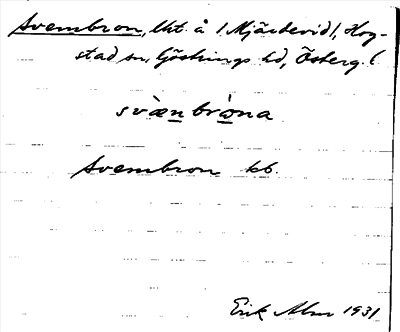 Svembron, lht. å 1 Mjärdevid /, Hog-
stad sn, Göstrings hd, Österg. l
svæ̀n brò̱na
Svembron kb.
Erik Alm 1931